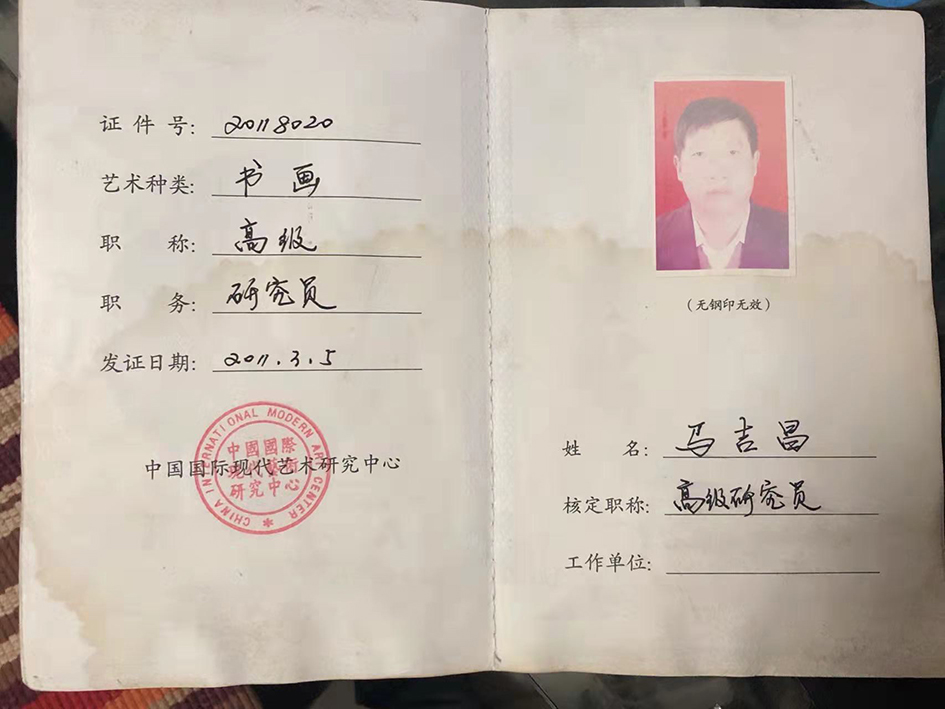 证件号: 2018020
艺术种类: 书画
职称: 高级
职务: 研究员
发证日期: 2011.3.5
中国国际现代艺术研究中心
CHINA INTERNATIONAL MODERN ART CENTER
中國國際
现代藝術
研究中心
(无钢印无效)
姓名: 马吉昌
核定职称: 高级研究员
工作单位: